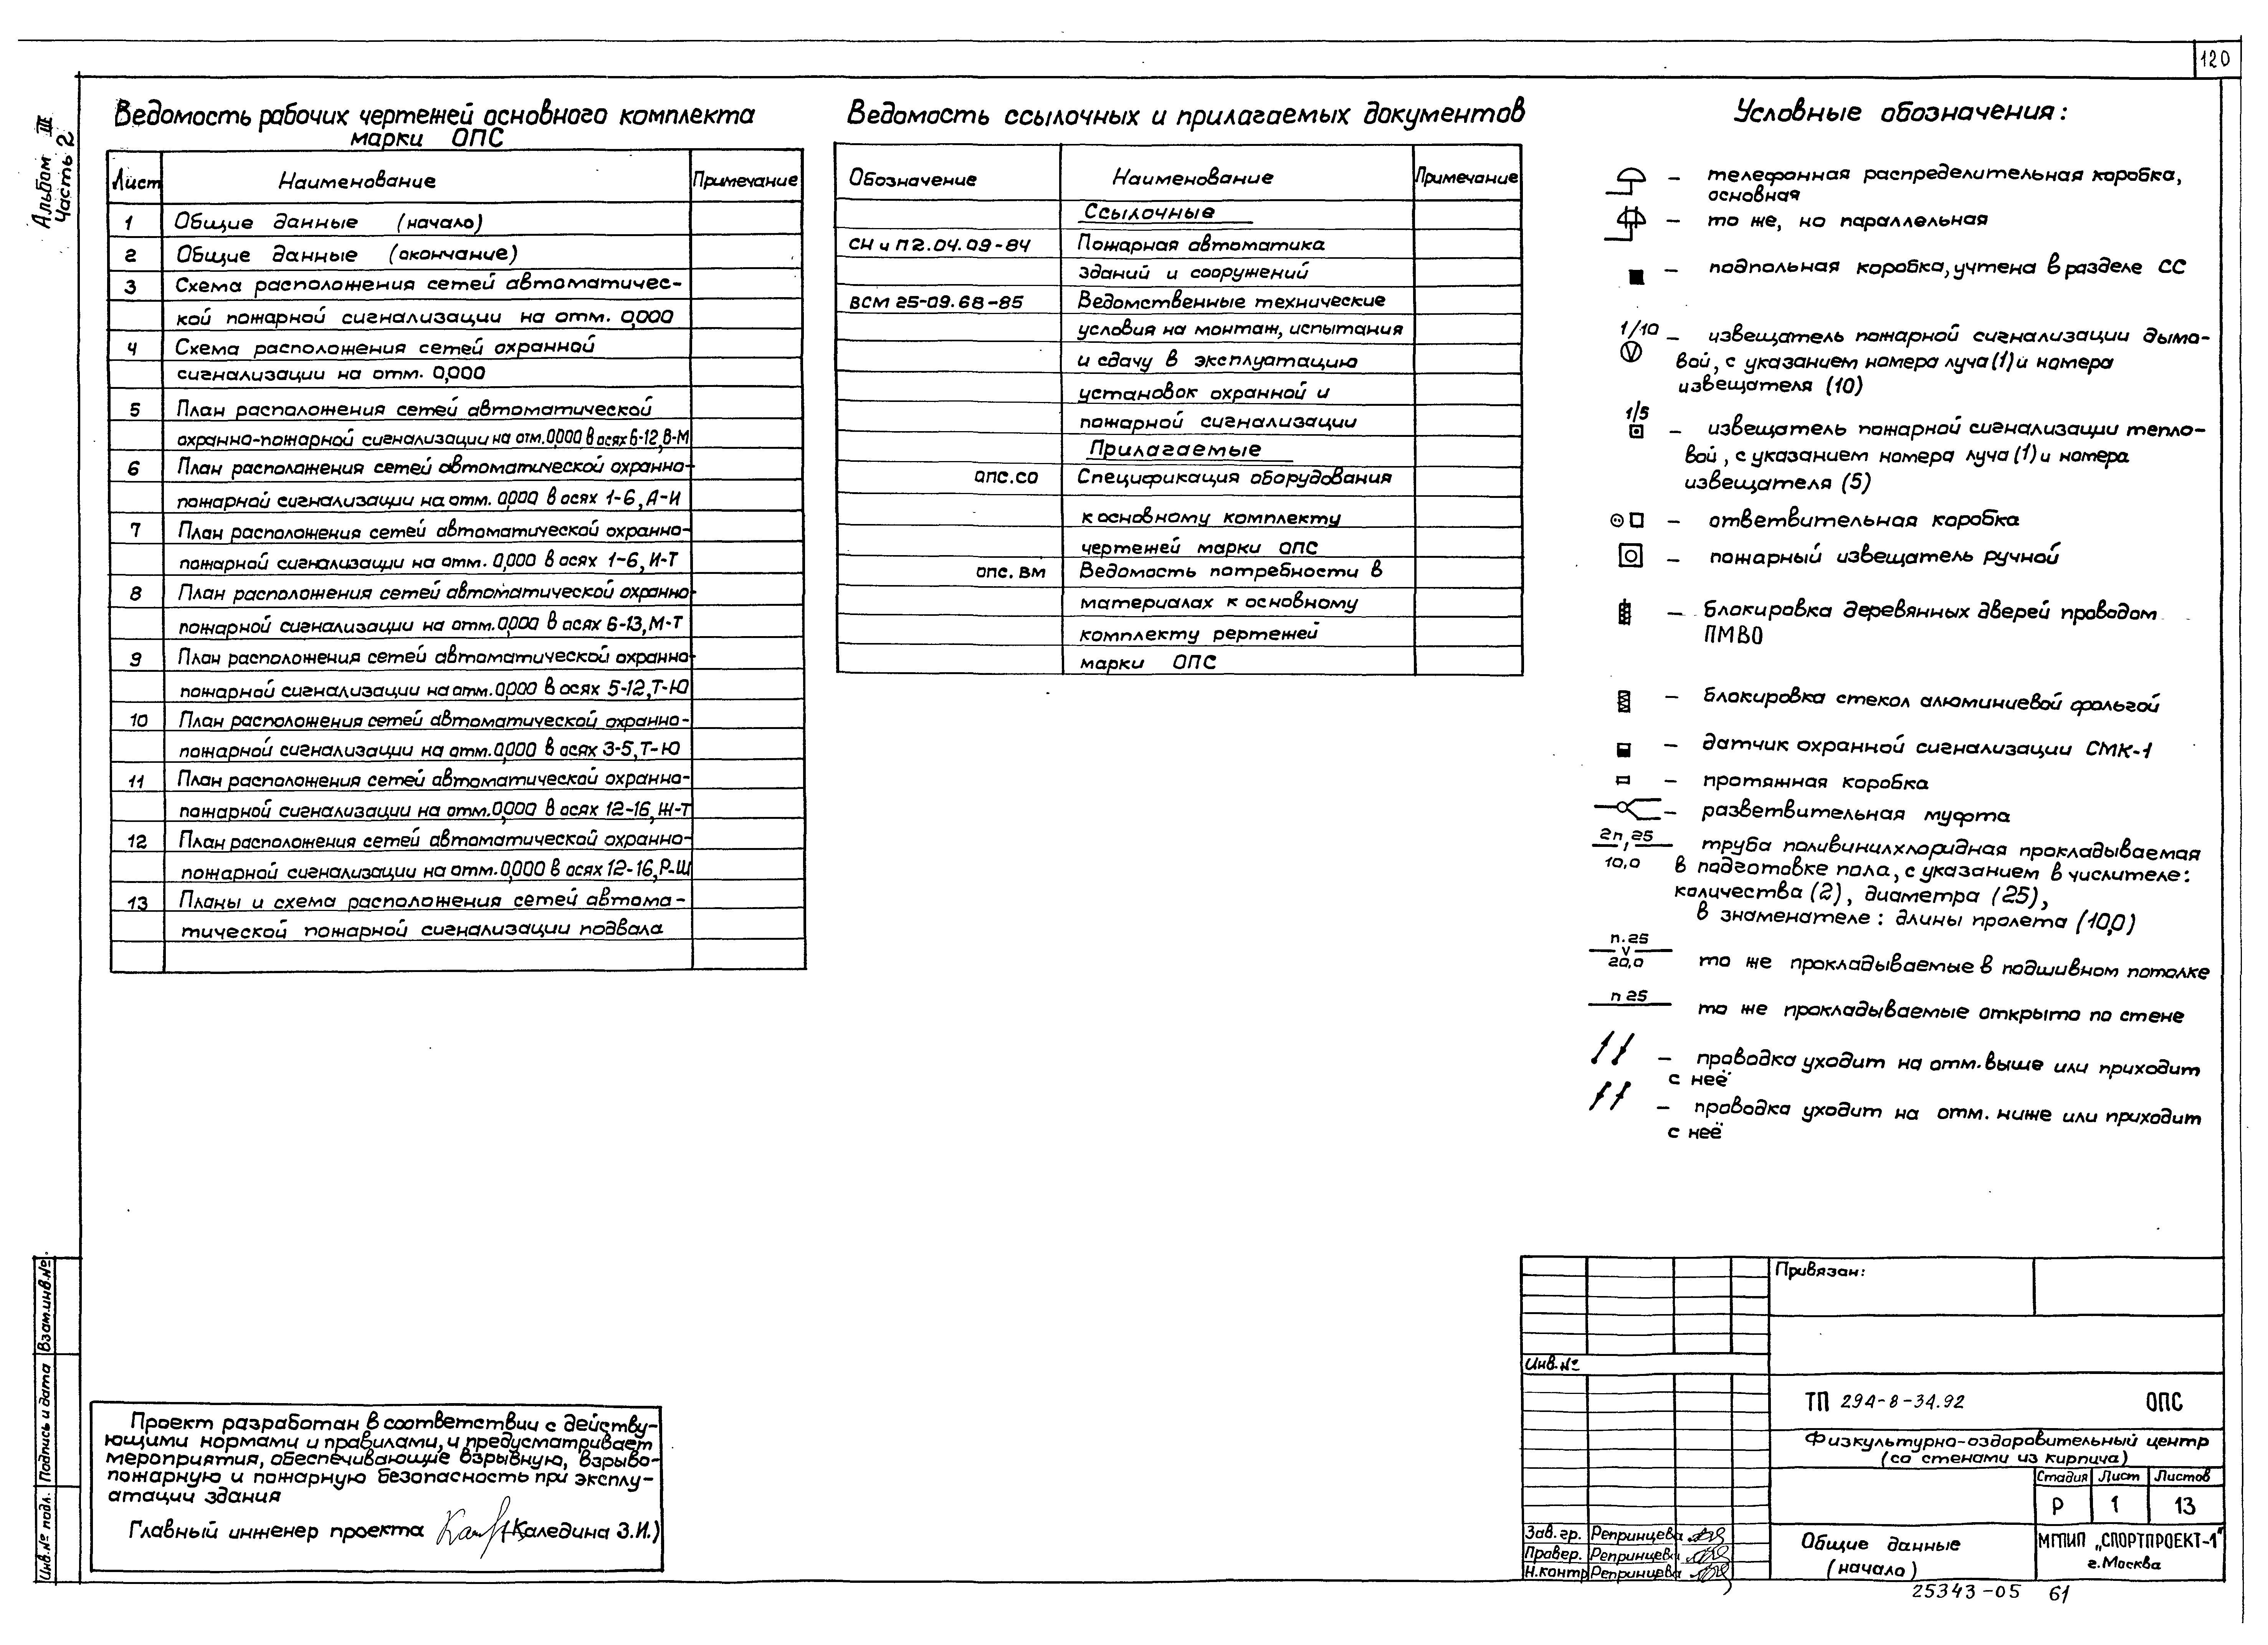 120
Альбом III
Часть 2
Ведомость рабочих чертежей основного комплекта
марки ОПС
Лист Наименование Примечание
1 Общие данные (начало)
2 Общие данные (окончание)
3 Схема расположения сетей автоматичес-
кой пожарной сигнализации на отм. 0,000
4 Схема расположения сетей охранной
сигнализации на отм. 0,000
5 План расположения сетей автоматической
охранно-пожарной сигнализации на отм. 0,000 в осях 6-12, В-М
6 План расположения сетей автоматической охранно-
пожарной сигнализации на отм. 0,000 в осях 1-6, А-И
7 План расположения сетей автоматической охранно-
пожарной сигнализации на отм. 0,000 в осях 1-6, И-Т
8 План расположения сетей автоматической охранно-
пожарной сигнализации на отм. 0,000 в осях 6-13, М-Т
9 План расположения сетей автоматической охранно-
пожарной сигнализации на отм. 0,000 в осях 5-12, Т-Ю
10 План расположения сетей автоматической охранно-
пожарной сигнализации на отм. 0,000 в осях 3-5, Т-Ю
11 План расположения сетей автоматической охранно-
пожарной сигнализации на отм. 0,000 в осях 12-16, Ж-Т
12 План расположения сетей автоматической охранно-
пожарной сигнализации на отм. 0,000 в осях 12-16, Р-Ш
13 Планы и схема расположения сетей автома-
тической пожарной сигнализации подвала
Ведомость ссылочных и прилагаемых документов
Обозначение Наименование Примечание
Ссылочные
СН и П 2.04.09-84 Пожарная автоматика
зданий и сооружений
ВСМ 25-09.68-85 Ведомственные технические
условия на монтаж, испытания
и сдачу в эксплуатацию
установок охранной и
пожарной сигнализации
Прилагаемые
ОПС.СО Спецификация оборудования
к основному комплекту
чертежей марки ОПС
ОПС.ВМ Ведомость потребности в
материалах к основному
комплекту рертежей
марки ОПС
Условные обозначения:
– телефонная распределительная коробка,
основная
– то же, но параллельная
– подпольная коробка, учтена в разделе СС
1/10 – извещатель пожарной сигнализации дымо-
вой, с указанием номера луча (1) и номера
извещателя (10)
1/5 – извещатель пожарной сигнализации тепло-
вой, с указанием номера луча (1) и номера
извещателя (5)
– ответвительная коробка
– пожарный извещатель ручной
– блокировка деревянных дверей проводом
ПМВО
– блокировка стекол алюминиевой фольгой
– датчик охранной сигнализации СМК-1
– протяжная коробка
– разветвительная муфта
2п, 25
10,0 труба поливинилхлоридная прокладываемая
в подготовке пола, с указанием в числителе:
количества (2), диаметра (25),
в знаменателе: длины пролета (10,0)
п.25
20,0 то же прокладываемые в подшивном потолке
п 25 то же прокладываемые открыто по стене
– проводка уходит на отм. выше или приходит
с неё
– проводка уходит на отм. ниже или приходит
с неё
Проект разработан в соответствии с действу-
ющими нормами и правилами, и предусматривает
мероприятия, обеспечивающие взрывную, взрыво-
пожарную и пожарную безопасность при эксплу-
атации здания
Главный инженер проекта (Каледина З.И.)
Взам.инв.№
Подпись и дата
Инв.№ подл.
Привязан:
Инв.№
ТП 294-8-34.92 ОПС
Физкультурно-оздоровительный центр
(со стенами из кирпича)
Стадия Лист Листов
Р 1 13
Зав. гр. Репринцева
Провер. Репринцева
Н.контр Репринцева
Общие данные
(начало)
МГПИП „СПОРТПРОЕКТ-1"
г.Москва
25343-05 61